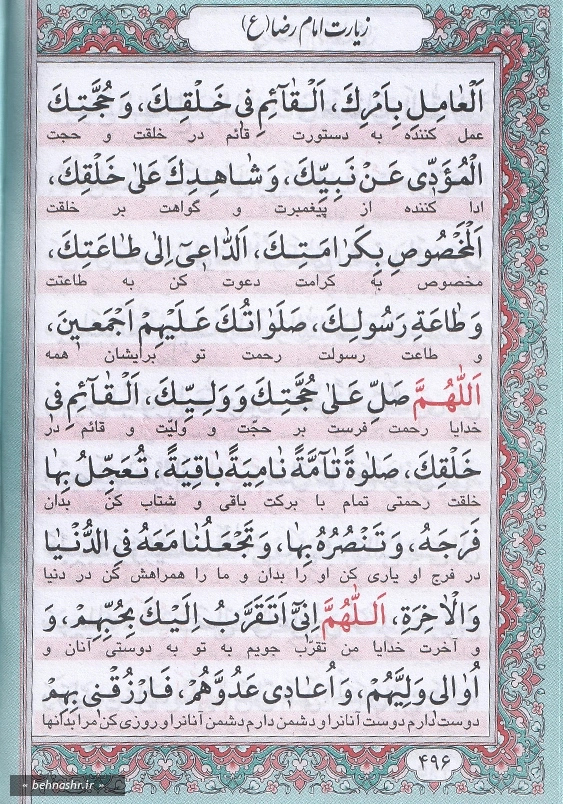 زیارت امام رضا (ع)
اَلْعامِلِ بِاَمْرِكَ، اَلْقآئِمِ فى خَلْقِكَ، وَ حُجَّتِكَ
عمل کننده به دستورت قائم در خلقت و حجت
الْمُؤَدّى عَنْ نَبِيِّكَ، وَ شاهِدِكَ عَلى خَلْقِكَ،
ادا کننده از پیغمبرت و گواهت بر خلقت
اَلْمَخْصُوصِ بِكَرامَتِكَ، اَلدّاعى اِلى طاعَتِكَ،
مخصوص به کرامت دعوت کن به طاعتت
وَ طاعَةِ رَسُولِكَ، صَلَواتُكَ عَلَيْهِمْ اَجْمَعينَ،
و طاعت رسولت رحمت تو برایشان همه
اَللّهُمَّ صَلِّ عَلى حُجَّتِكَ وَ وَلِيِّكَ، اَلْقآئِمِ فى
خدایا رحمت فرست بر حجّت و ولیّت و قائم در
خَلْقِكَ، صَلوةً تآمَّةً نامِيَةً باقِيَةً، تُعَجِّلُ بِها
خلقت رحمتی تمام با برکت باقی و شتاب کن بدان
فَرَجَهُ، وَ تَنْصُرُهُ بِها، وَ تَجْعَلُنا مَعَهُ فِى الدُّنْيا
در فرج او یاری کن او را بدان و ما را همراهش کن در دنیا
وَالْاخِرَةِ، اَللّهُمَّ اِنّى اَتَقَرَّبُ اِلَيْكَ بِحُبِّهِمْ، وَ
و آخرت خدایا من تقرّب جویم به تو به دوستی آنان و
اُوالى وَلِيَّهُمْ، وَ اُعادى عَدُوَّهُمْ، فَارْزُقْنى بِهِمْ
دوست دارم دوست آنانرا و دشمن دارم دشمن آنانرا و روزی کن مرا بدانها
۴۹۶
« behnashr.ir »